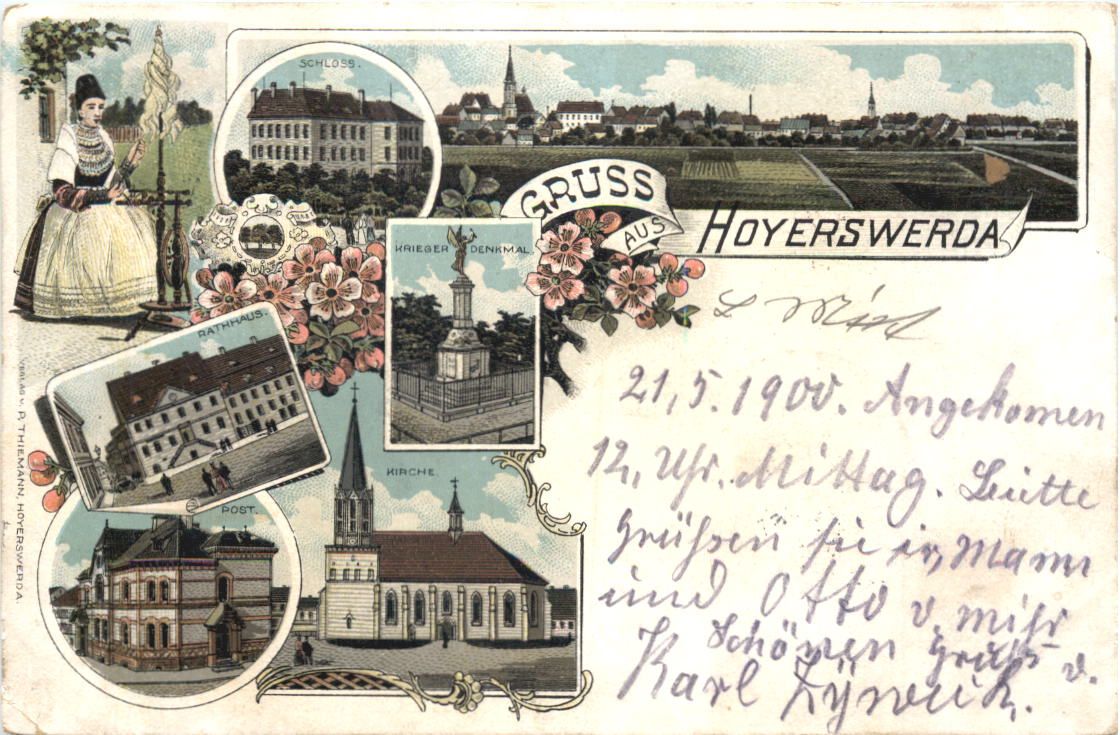 SCHLOSS.
GRUSS
AUS
HOYERSWERDA
KRIEGER DENKMAL
RATHHAUS.
KIRCHE.
POST.
VERLAG v. P. THIEMANN, HOYERSWERDA.
21,5.1900. Angekomen
12, Uhr. Mittag. Bitte
Grüßen sie ir, Mann
und Otto v. mihr
Schönen Gruß v.
Karl